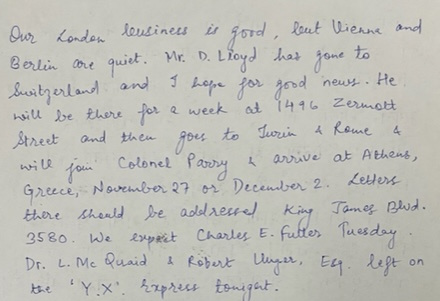 Our London business is good, but Vienna and
Berlin are quiet. Mr. D. Lloyd has gone to
Switzerland and I hope for good news. He
will be there for a week at 1496 Zermott
Street and then goes to Turin & Rome &
will join Colonel Parry & arrive at Athens,
Greece, November 27 or December 2. Letters
there should be addressed King James Blvd.
3580. We expect Charles E. Fuller Tuesday.
Dr. L. McQuaid & Robert Unger, Esq. left on
the 'Y.X'. Express tonight.